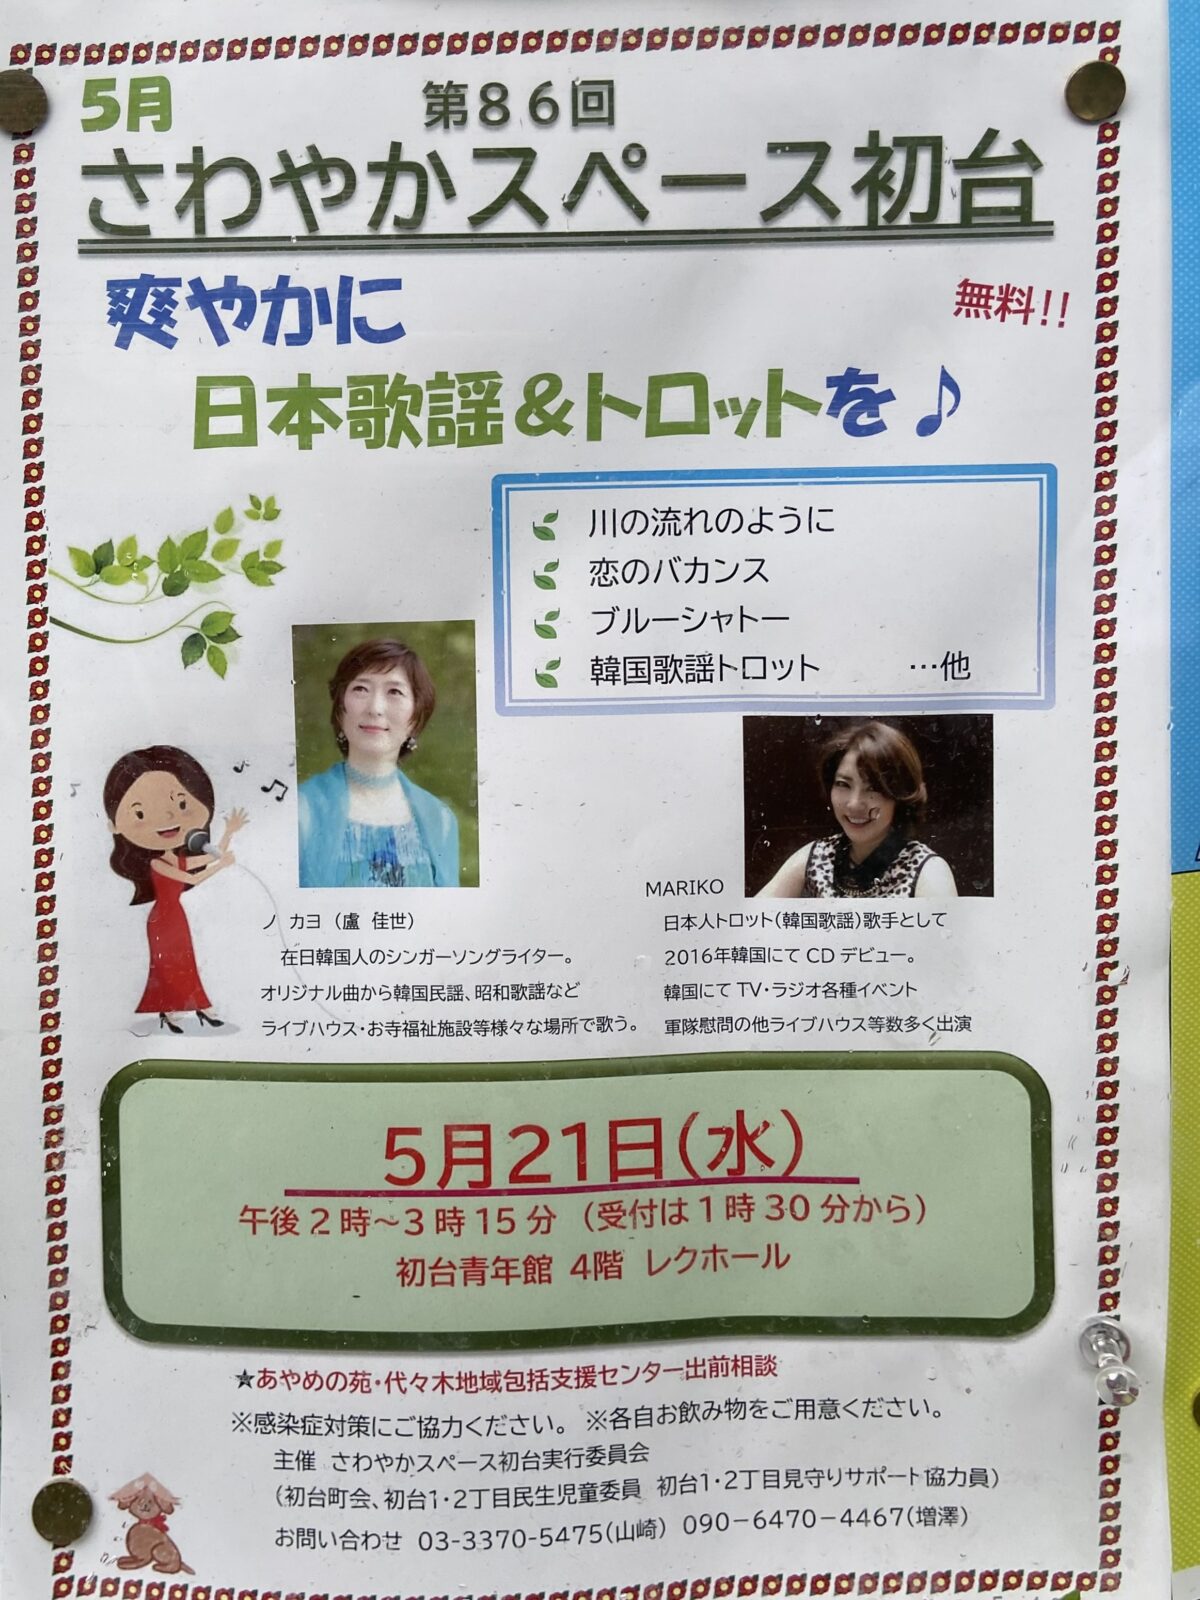 5月
第86回
さわやかスペース初台
爽やかに
無料!!
日本歌謡&トロットを♪
川の流れのように
恋のバカンス
ブルーシャトー
韓国歌謡トロット …他
ノ カヨ (盧 佳世)
在日韓国人のシンガーソングライター。
オリジナル曲から韓国民謡、昭和歌謡など
ライブハウス・お寺福祉施設等様々な場所で歌う。
MARIKO
日本人トロット(韓国歌謡)歌手として
2016年韓国にて CD デビュー。
韓国にて TV・ラジオ各種イベント
軍隊慰問の他ライブハウス等数多く出演
5月21日(水)
午後2時~3時15分 (受付は1時30分から)
初台青年館 4階 レクホール
★あやめの苑・代々木地域包括支援センター出前相談
※感染症対策にご協力ください。 ※各自お飲み物をご用意ください。
主催 さわやかスペース初台実行委員会
(初台町会、初台1・2丁目民生児童委員 初台1・2丁目見守りサポート協力員)
お問い合わせ 03-3370-5475(山崎) 090-6470-4467(増澤)